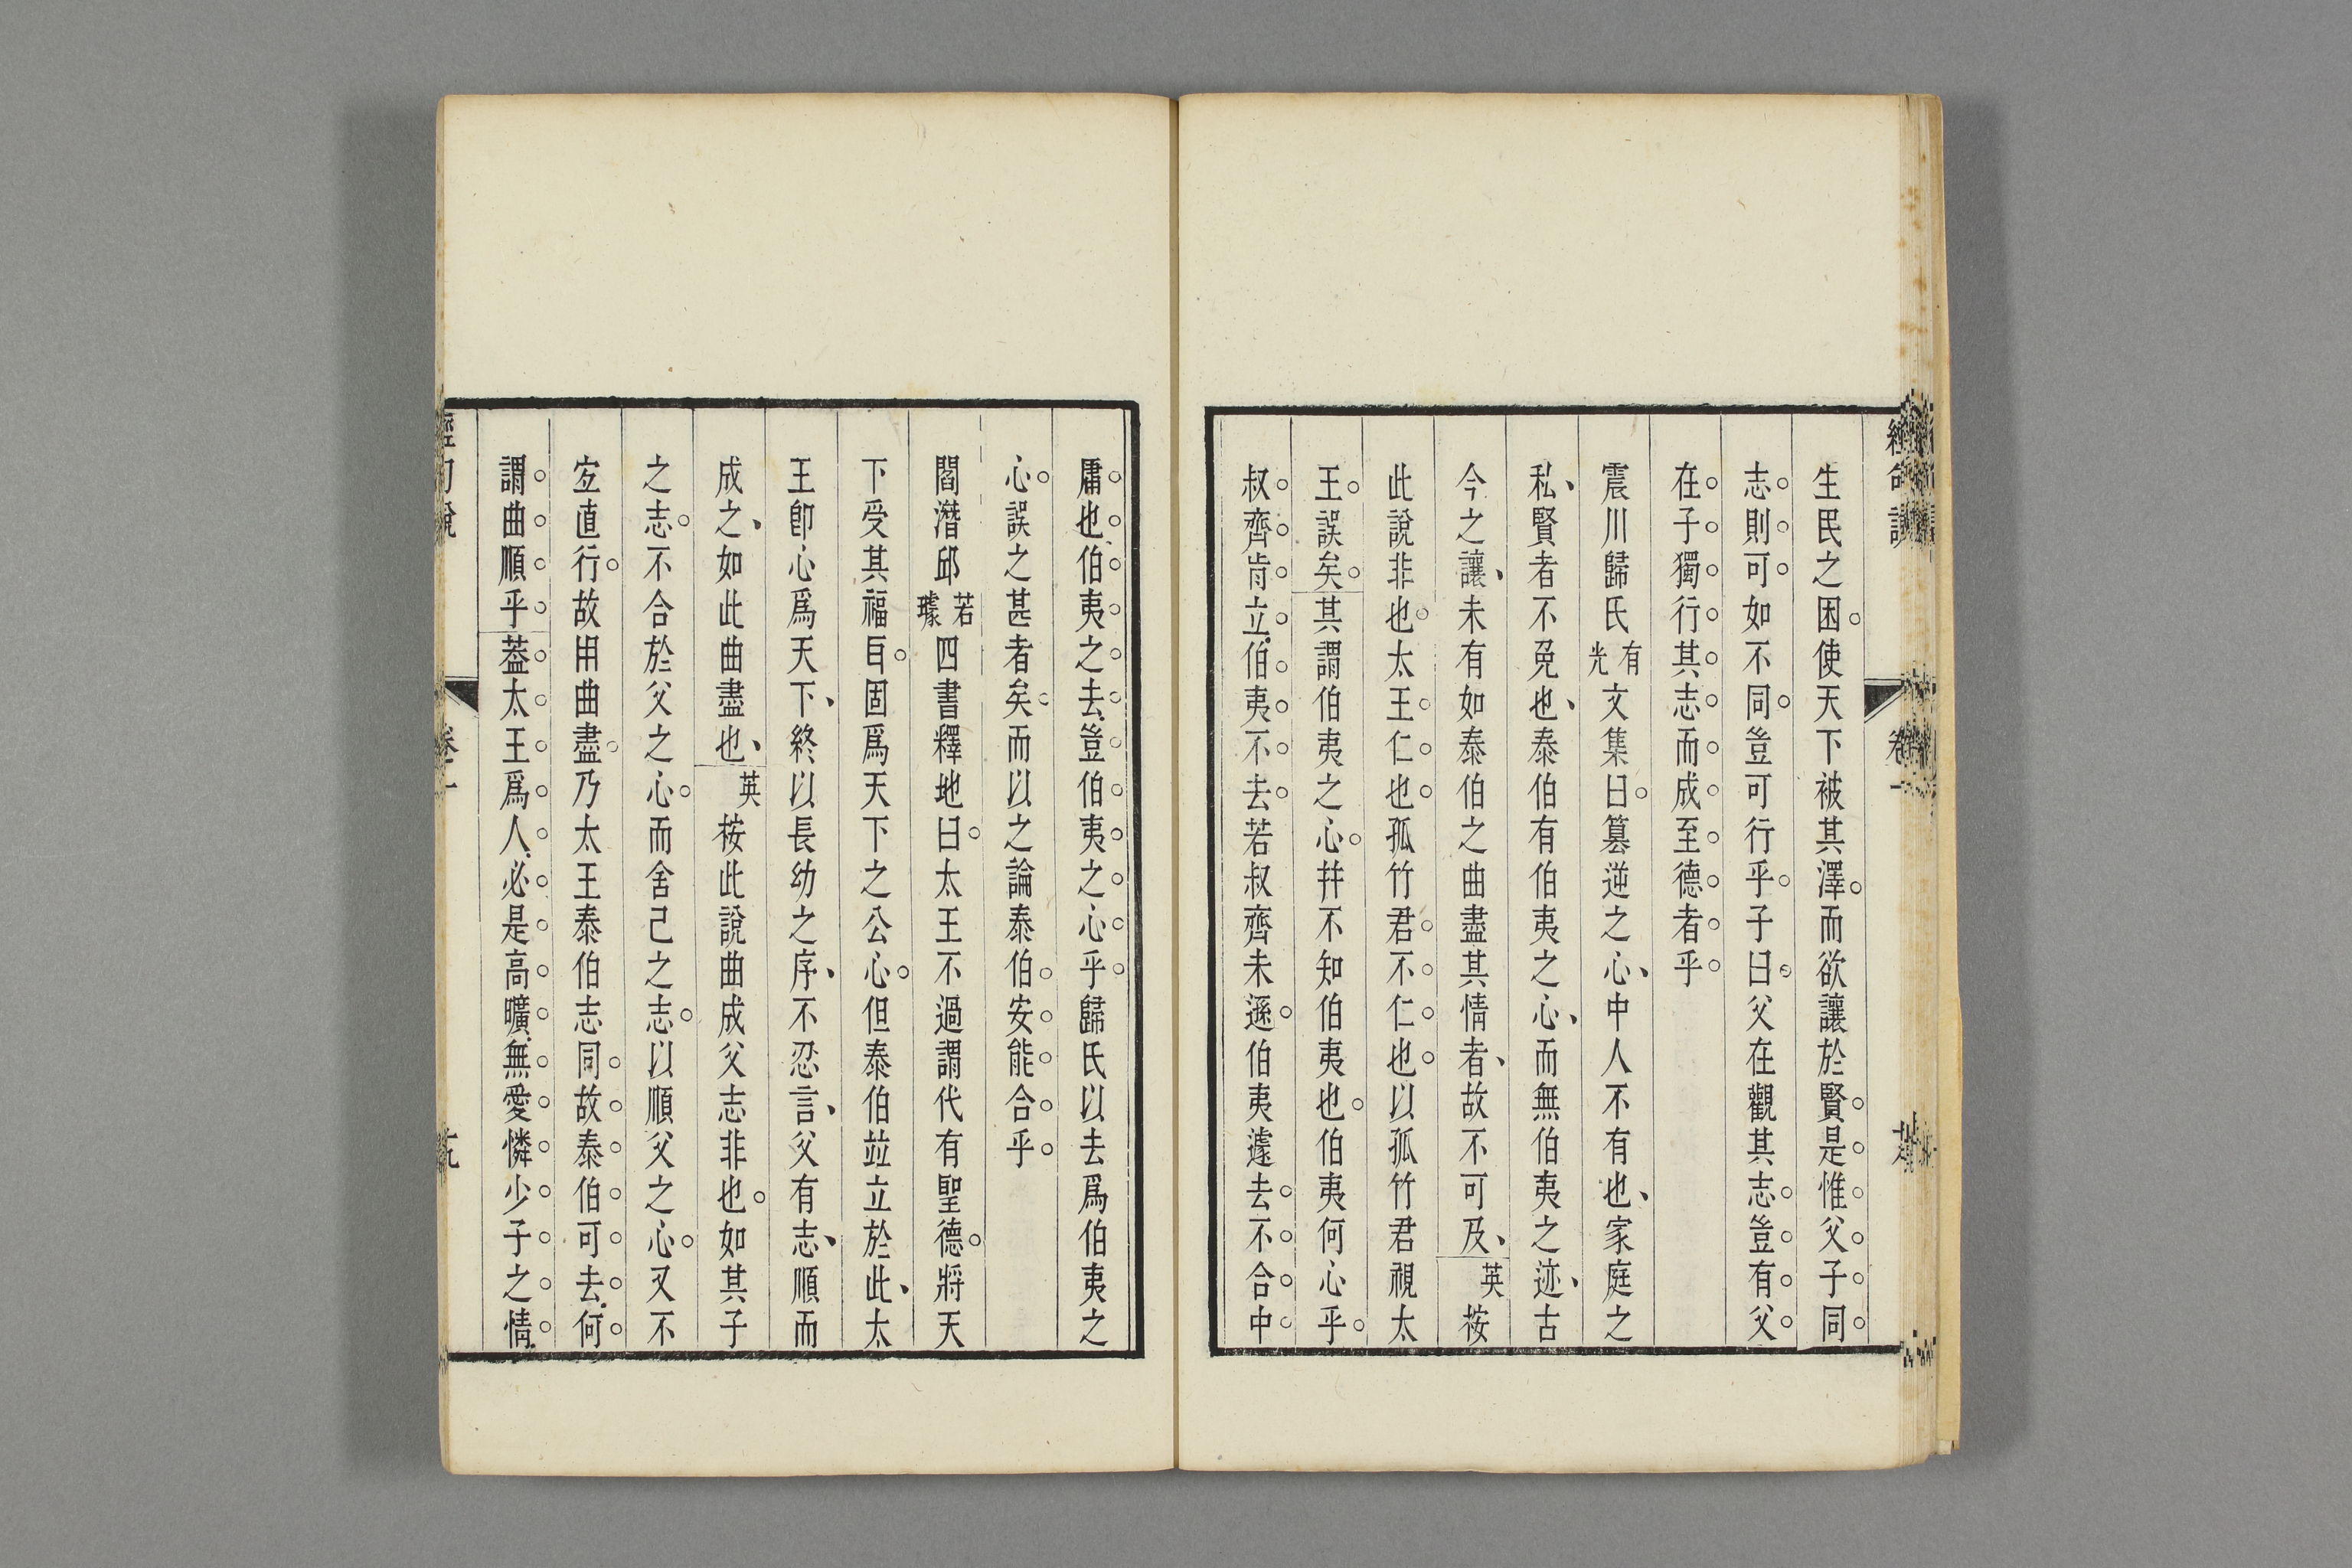 生民之困使天下被其澤而欲讓於賢是惟父子同
志則可如不同豈可行乎子曰父在觀其志豈有父
在子獨行其志而成至德者乎
震川歸氏有光文集曰篡逆之心中人不有也家庭之
私賢者不免也泰伯有伯夷之心而無伯夷之迹古
今之讓未有如泰伯之曲盡其情者故不可及英桉
此說非也太王仁也孤竹君不仁也以孤竹君視太
王誤矣其謂伯夷之心幷不知伯夷也伯夷何心乎
叔齊肯立伯夷不去若叔齊未遜伯夷遽去不合中
庸也伯夷之去豈伯夷之心乎歸氏以去爲伯夷之
心誤之甚者矣而以之論泰伯安能合乎
閻潛邱若璩四書釋地曰太王不過謂代有聖德將天
下受其福㠯固爲天下之公心但泰伯竝立於此太
王卽心爲天下終以長幼之序不忍言父有志順而
成之如此曲盡也英桉此說曲成父志非也如其子
之志不合於父之心而舍己之志以順父之心又不
宐直行故用曲盡乃太王泰伯志同故泰伯可去何
謂曲順乎葢太王爲人必是高曠無愛憐少子之情